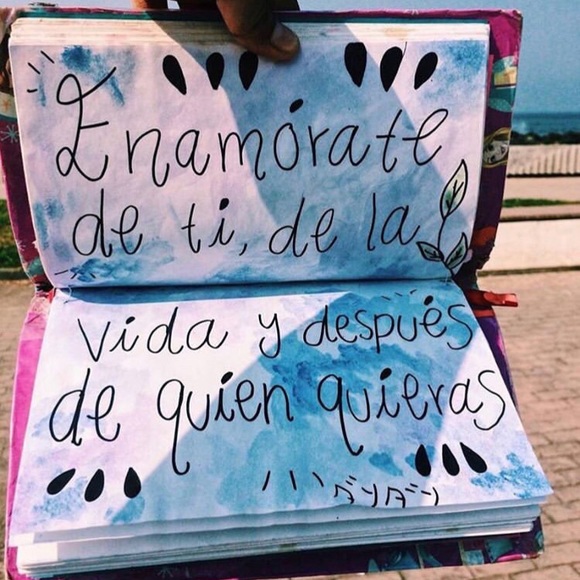 Enamórate
de ti, de la
vida y después
de quien quieras